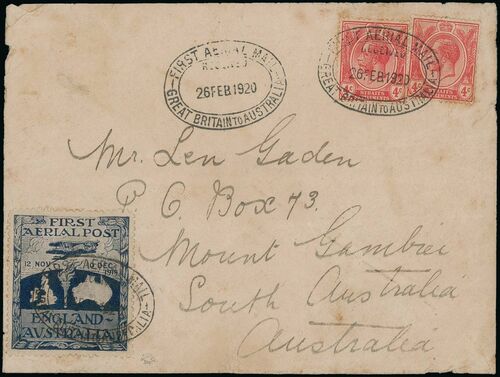 FIRST AERIAL MAIL
RECEIVED
26 FEB 1920
GREAT BRITAIN TO AUSTRALIA
FIRST AERIAL MAIL
RECEIVED
26 FEB 1920
GREAT BRITAIN TO AUSTRALIA
4c STRAITS SETTLEMENTS 4c
STRAITS SETTLEMENTS 4c
Mr. Len Gaden
P O. Box 73.
Mount Gambier
South Australia
Australia
FIRST
AERIAL POST
12 NOV. 10 DEC.
1919
ENGLAND
AUSTRALIA